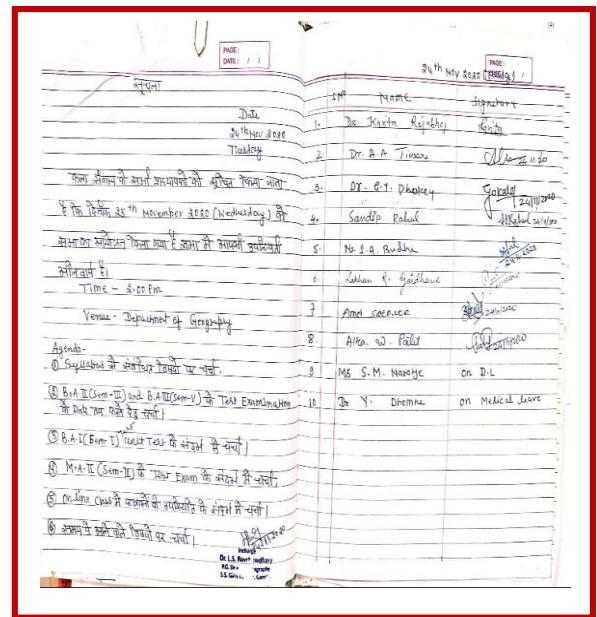 PAGE:
DATE: / /
सूचना
Date
24th Nov 2020
Tuesday
कला संकाय के सभी प्राध्यापकों को सूचित किया जाता
है कि दिनांक 25th November 2020 (Wednesday) को
सभा का आयोजन किया गया है सभा में आपकी उपस्थिती
अनिवार्य है।
Time - 2.00 Pm
Venue - Department of Geography
Agenda-
① Syllabus से संबंधित विषयों पर चर्चा।
② B.A II (Sem-III) and B.A III (Sem-V) के Test Examination
के Date तय करने हेतु चर्चा।
③ B.A.I (Sem I) unit Test के संदर्भ में चर्चा।
④ M.A-II (Sem-III) के Test Exam के संदर्भ में चर्चा।
⑤ On line Class में छात्रों के उपस्थिति के संदर्भ में चर्चा।
⑥ समय पे आने वाले विषयों पर चर्चा।
Incharge
Dr. L.S.
PAGE:
24th Nov 2020
Name Signature
1. Dr. Kanta
2 Dr. A.A Tiwari
3. Dr. G.Y. Dhokey 24/11/2020
4. Sandip Rahul
5. Mr. S.A. Budhe 24.11.2020
6. R. Gaidhane
7
8. Alka. W. Patil
9 Ms S.M. on D.L
10 Dr Y. Dhemne on Medical leave